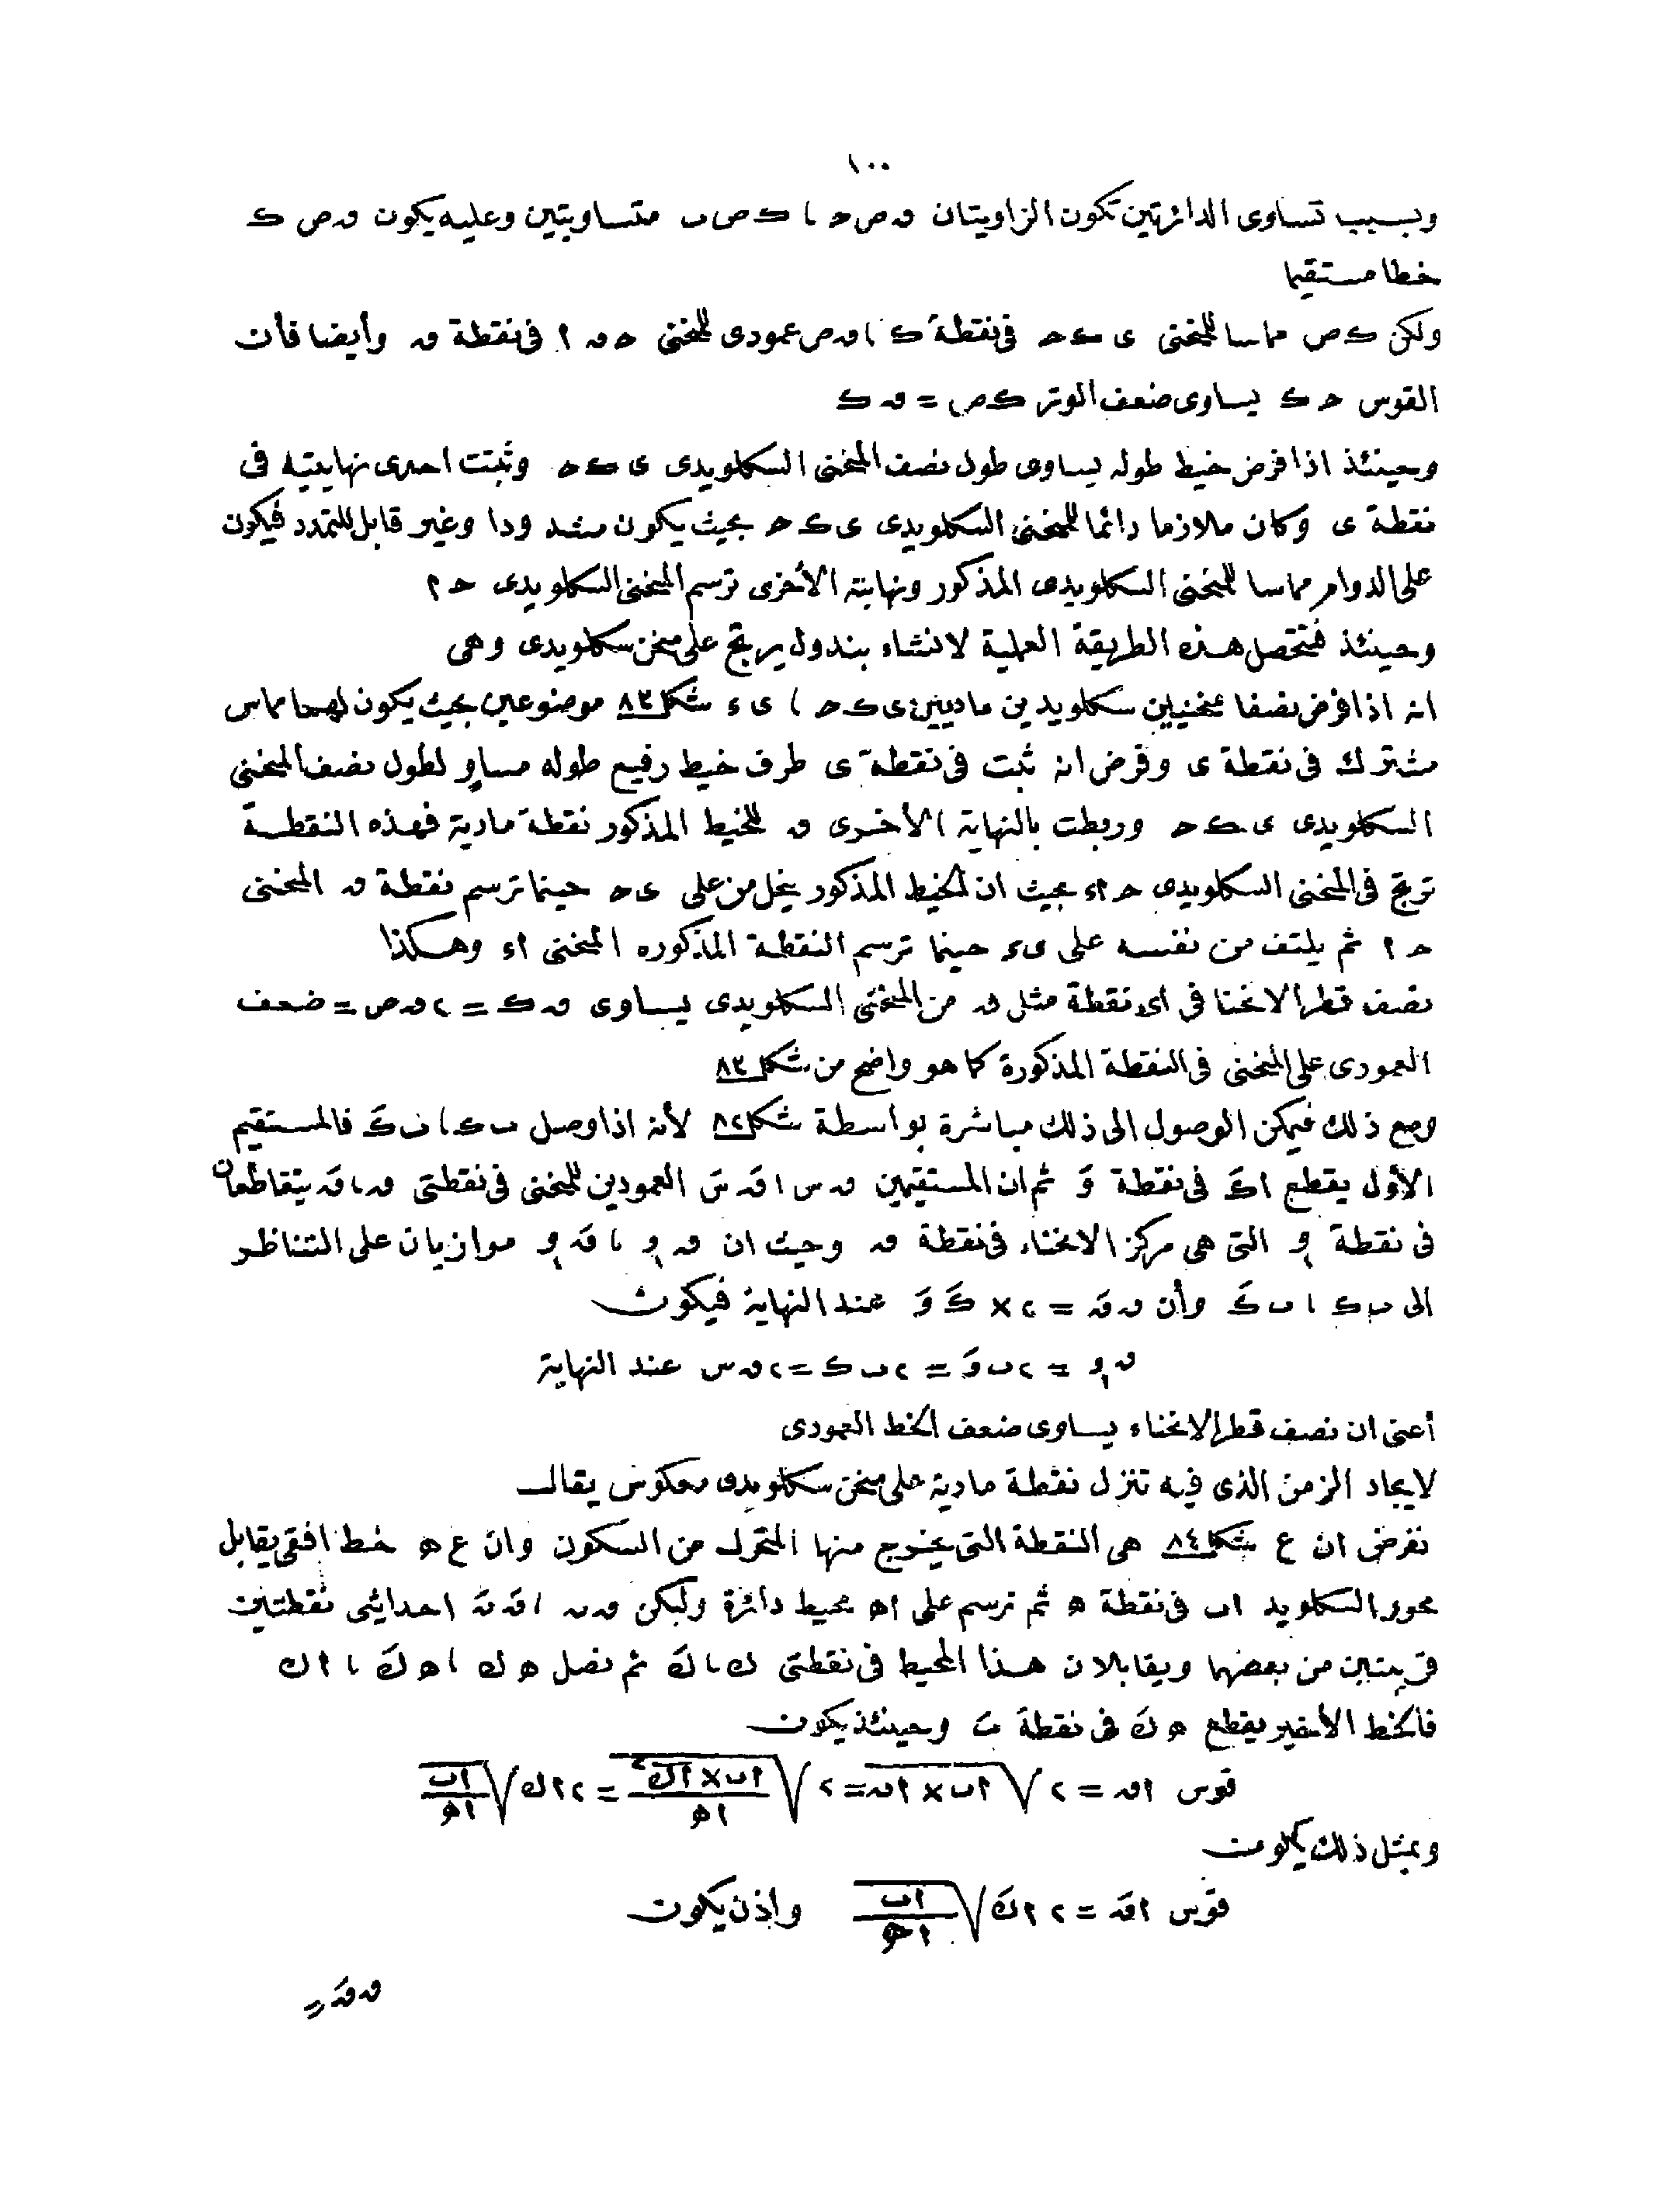 ١٠٠
وبسبب تساوى الدائرتين تكون الزاويتان ٯ ص ح ، ك ص ب متساويتين وعليه يكون ٯ ص ك
خطا مستقيما
ولكن ك ص مماسا للمنحنى ى ك ح فى نقطة ك ، ٯ ص عمودى للمنحنى ح ٯ ا فى نقطة ٯ وأيضا فأن
القوس ح ك يساوى ضعف الوتر ك ص = ٯ ك
وحينئذ اذا فرض خيط طوله يساوى طول نصف المنحنى السكلويدى ى ك ح وثبتت احدى نهايتيه فى
نقطة ى وكان ملازما دائما للمنحنى السكلويدى ى ك ح بحيث يكون مشدودا وغير قابل للتمدد فيكون
على الدوام مماسا للمنحنى السكلويدى المذكور ونهايته الأخرى ترسم المنحنى السكلويدى ح ا
وحينئذ فتحصل هذه الطريقة العملية لانشاء بندول يرتج على منحن سكلويدى وهى
انه اذا فرض نصفا منحنيين سكلويدين ماديين ى ك ح ، ى ء شكل ٨٣ موضوعين بحيث يكون لهما مماس
مشترك فى نقطة ى وفرض انه ثبت فى نقطة ى طرف خيط رفيع طوله مساو لطول نصف المنحنى
السكلويدى ى ك ح وربطت بالنهاية الأخرى ٯ للخيط المذكور نقطة مادية فهذه النقطة
ترتج فى المنحنى السكلويدى ح ا ء بحيث ان الخيط المذكور ينحل من على ى ح حينما ترسم نقطة ٯ المنحنى
ح ا ثم يلتف من نفسه على ى ء حينما ترسم النقطة المذكوره المنحنى ا ء وهكذا
نصف قطر الانحنا فى اى نقطة مثل ٯ من المنحنى السكلويدى يساوى ٯ ك = ٢ ٯ ص = ضعف
العمودى على المنحنى فى النقطة المذكورة كما هو واضح من شكل ٨٣
ومع ذلك فيمكن الوصول الى ذلك مباشرة بواسطة شكل ٨٢ لأنه اذا وصل ب ك ، ب كَ فالمستقيم
الأول يقطع ا كَ فى نقطة وَ ثم ان المستقيمين ٯ س ، ٯَ سَ العمودين للمنحنى فى نقطتى ٯ ، ٯَ يتقاطعان
فى نقطة و١ التى هى مركز الانحناء فى نقطة ٯ وحيث ان ٯ و١ ، ٯَ و١ موازيان على التناظر
الى ب ك ، ب كَ وأن ٯ ٯَ = ٢ × كَ وَ عند النهاية فيكون
ٯ و١ = ٢ ب وَ = ٢ ب ك = ٢ ٯ س عند النهاية
أعنى ان نصف قطر الانحناء يساوى ضعف الخط العمودى
لايجاد الزمن الذى فيه تنزل نقطة مادية على منحن سكلويدى معكوس يقال
نفرض ان ع شكل ٨٤ هى النقطة التى يخرج منها المتحرك من السكون وان ع ه خط افقى يقابل
محور السكلويد ا ب فى نقطة ه ثم ترسم على ا ه محيط دائرة وليكن ٯ ں ، ٯَ ںَ احداثيى نقطتين
قريبتين من بعضهما ويقابلان هذا المحيط فى نقطتى ك ، كَ ثم نصل ه ك ، ه كَ ، ا ك
فالخط الأخير يقطع ه كَ فى نقطة تَ وحينئذ يكون
قوس اٯ = ٢ √ اب × اں = ٢ √ اب × اك٢ / اه = ٢ اك √ اب / اه
وبمثل ذلك يكون
قوس اٯَ = ٢ اكَ √ اب / اه واذن يكون
ٯ ٯَ =